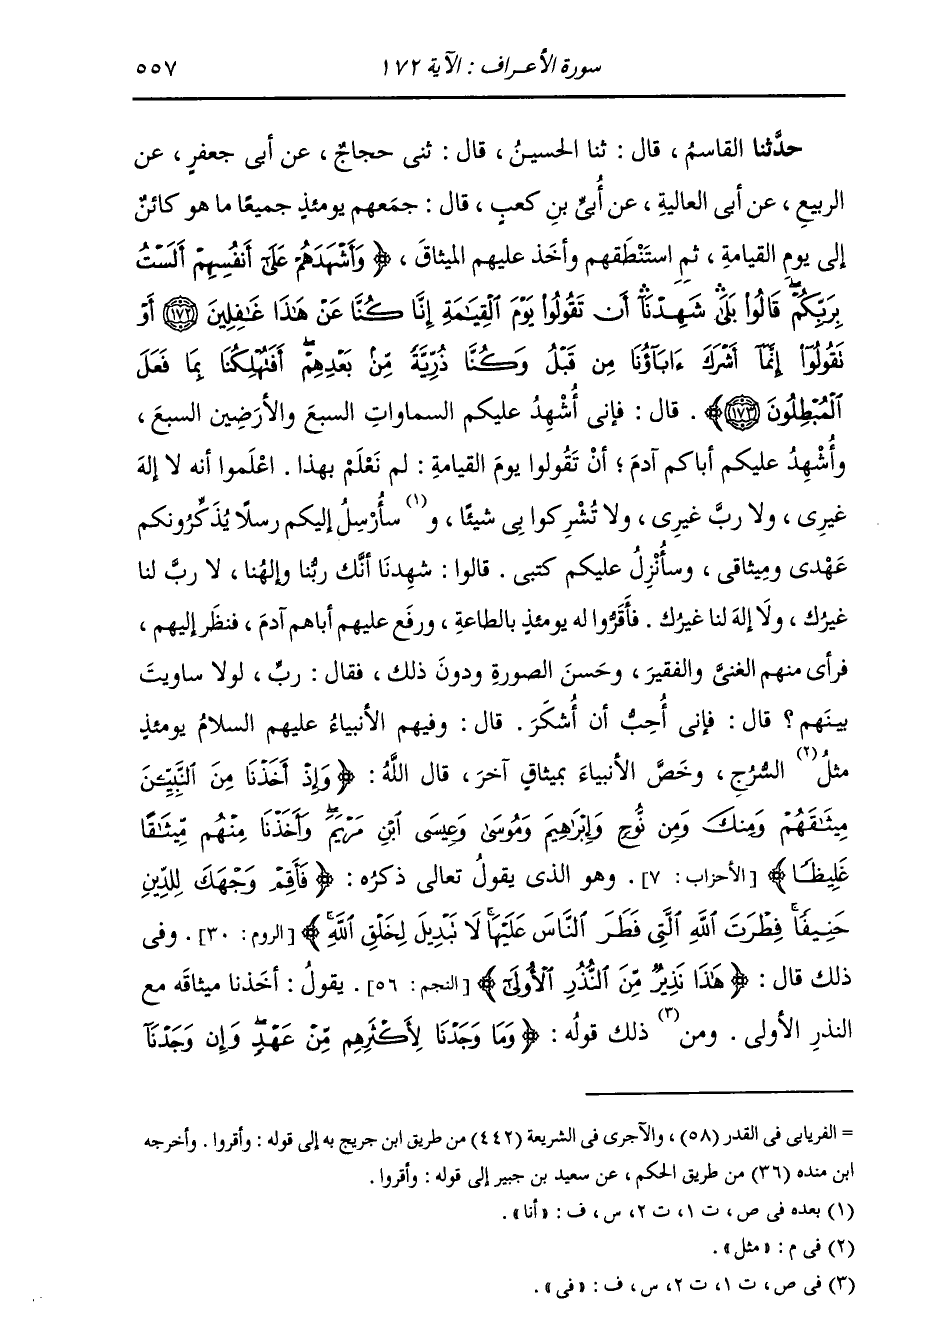 سورة الأعراف : الآية ١٧٢ ٥٥٧
حدَّثنا القاسمُ ، قال : ثنا الحسينُ ، قال : ثنى حجاجٌ ، عن أبى جعفرٍ ، عن
الربيعِ ، عن أبى العاليةِ ، عن أُبىِّ بنِ كعبٍ ، قال : جمَعهم يومئذٍ جميعًا ما هو كائنٌ
إلى يومِ القيامةِ ، ثم استَنْطَقهم وأخَذ عليهم الميثاقَ ، ﴿ وَأَشْهَدَهُمْ عَلَىٰٓ أَنفُسِهِمْ أَلَسْتُ
بِرَبِّكُمْ ۖ قَالُوا۟ بَلَىٰ ۛ شَهِدْنَآ ۛ أَن تَقُولُوا۟ يَوْمَ ٱلْقِيَـٰمَةِ إِنَّا كُنَّا عَنْ هَـٰذَا غَـٰفِلِينَ ﴿١٧٢﴾ أَوْ
تَقُولُوٓا۟ إِنَّمَآ أَشْرَكَ ءَابَآؤُنَا مِن قَبْلُ وَكُنَّا ذُرِّيَّةً مِّنۢ بَعْدِهِمْ ۖ أَفَتُهْلِكُنَا بِمَا فَعَلَ
ٱلْمُبْطِلُونَ ﴿١٧٣﴾ ﴾ . قال : فإنى أُشْهِدُ عليكم السماواتِ السبعَ والأرَضِين السبعَ ،
وأُشْهِدُ عليكم أباكم آدمَ ؛ أنْ تَقُولوا يومَ القيامةِ : لم نَعْلَمْ بهذا . اعْلَموا أنه لا إلهَ
غيرى ، ولا ربَّ غيرى ، ولا تُشْرِكوا بى شيئًا ، و(١) سأُرْسِلُ إليكم رسلًا يُذَكِّرُونكم
عَهْدى ومِيثاقى ، وسأُنْزِلُ عليكم كتبى . قالوا : شهِدنَا أنَّك ربُّنا وإلهُنا ، لا ربَّ لنا
غيرُك ، ولَا إلهَ لنا غيرُك . فأَقَرُّوا له يومئذٍ بالطاعةِ ، ورفَع عليهم أباهم آدمَ ، فنظَر إليهم ،
فرأى منهم الغنىَّ والفقيرَ ، وحَسنَ الصورةِ ودونَ ذلك ، فقال : ربِّ ، لولا ساويتَ
بينَهم ؟ قال : فإنى أُحِبُّ أن أُشكَرَ . قال : وفيهم الأنبياءُ عليهم السلامُ يومئذٍ
مثلُ(٢) السُّرُجِ ، وخَصَّ الأنبياءَ بميثاقٍ آخرَ ، قال اللَّهُ : ﴿ وَإِذْ أَخَذْنَا مِنَ ٱلنَّبِيِّـۧنَ
مِيثَـٰقَهُمْ وَمِنكَ وَمِن نُّوحٍ وَإِبْرَٰهِيمَ وَمُوسَىٰ وَعِيسَى ٱبْنِ مَرْيَمَ ۖ وَأَخَذْنَا مِنْهُم مِّيثَـٰقًا
غَلِيظًا ﴾ [الأحزاب: ٧] . وهو الذى يقولُ تعالى ذكرُه : ﴿ فَأَقِمْ وَجْهَكَ لِلدِّينِ
حَنِيفًا ۚ فِطْرَتَ ٱللَّهِ ٱلَّتِى فَطَرَ ٱلنَّاسَ عَلَيْهَا ۚ لَا تَبْدِيلَ لِخَلْقِ ٱللَّهِ ۚ ﴾ [الروم: ٣٠] . وفى
ذلك قال : ﴿ هَـٰذَا نَذِيرٌ مِّنَ ٱلنُّذُرِ ٱلْأُولَىٰٓ ﴾ [النجم: ٥٦] . يقولُ : أخَذنا ميثاقَه مع
النذرِ الأولى . ومن(٣) ذلك قولُه : ﴿ وَمَا وَجَدْنَا لِأَكْثَرِهِم مِّنْ عَهْدٍ ۖ وَإِن وَجَدْنَآ
= الفريابى فى القدر (٥٨) ، والآجرى فى الشريعة (٤٤٢) من طريق ابن جريج به إلى قوله : وأقروا . وأخرجه
ابن منده (٣٦) من طريق الحكم ، عن سعيد بن جبير إلى قوله : وأقروا .
(١) بعده فى ص ، ت ١ ، ت ٢ ، س ، ف : «أنا» .
(٢) فى م : «مثل» .
(٣) فى ص ، ت ١ ، ت ٢ ، س ، ف : «فى» .